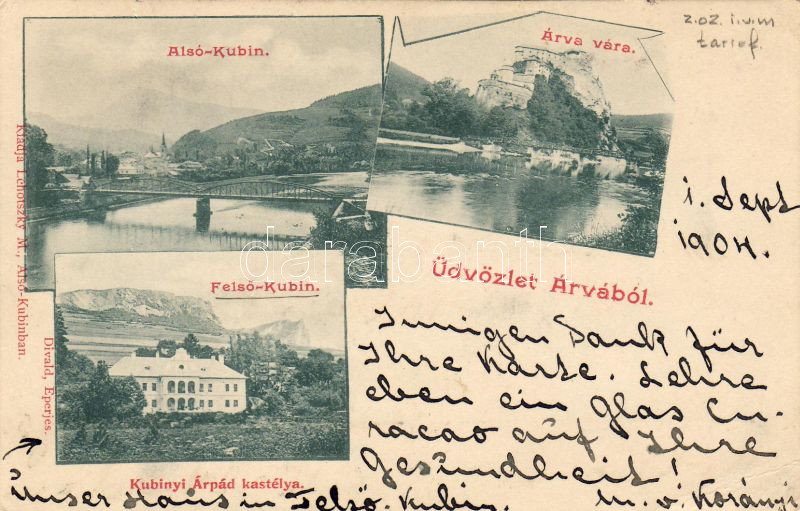 2.02. i.v.m
tarief.
Alsó-Kubin.
Árva vára.
Kiadja Lehotszky M., Alsó-Kubinban.
Divald, Eperjes.
1. Sept
1904.
darabanth
Üdvözlet Árvából.
Felső-Kubin.
Innigen Dank für
Ihre Karte. Lehre
eben ein Glas Cu-
racao auf Ihre
Gesundheit!
Kubinyi Árpád kastélya.
Unser Haus in Felső-Kubin.
M. v. Korányi